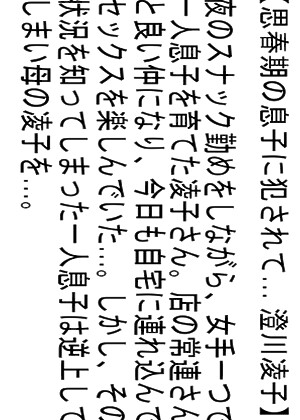 【思春期の息子に犯されて… 澄川凌子】
夜のスナック勤めをしながら、女手一つで
一人息子を育てた凌子さん。店の常連さん
と良い仲になり、今日も自宅に連れ込んで
セックスを楽しんでいた…。しかし、その
状況を知ってしまった一人息子は逆上して
しまい母の凌子を…。